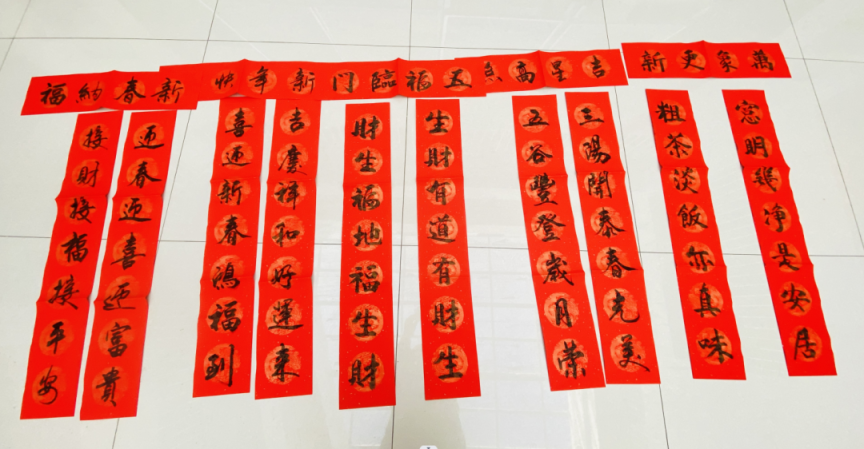 萬象更新
吉星高
五福臨門
新年快
新春納福
窓明幾净是安居
粗茶淡飯亦真味
三陽開泰春光美
五谷豐登歲月榮
生財有道有財生
財生福地福生財
吉慶祥和好運來
喜迎新春鴻福到
迎春迎喜迎富貴
接財接福接平安